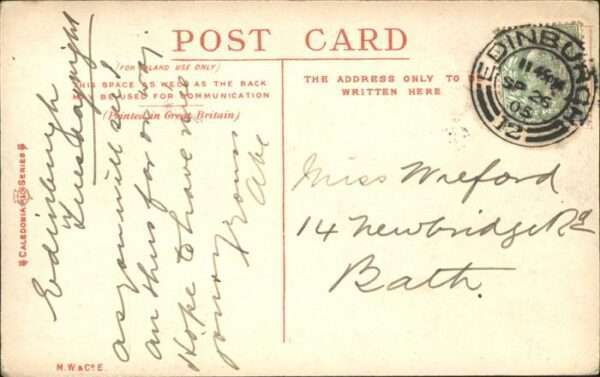 POST CARD
(FOR INLAND USE ONLY)
THIS SPACE AS WELL AS THE BACK
MAY BE USED FOR COMMUNICATION
(Printed in Great Britain)
THE ADDRESS ONLY TO BE
WRITTEN HERE
EDINBURGH
SP 26
05
12
Edinburgh
Tuesday night
as you will see I
am thus far on my
Hope to have
yours
Abe
Miss
14 Newbridge Rd
Bath.
CALEDONIA SERIES
M.W.& Co E.